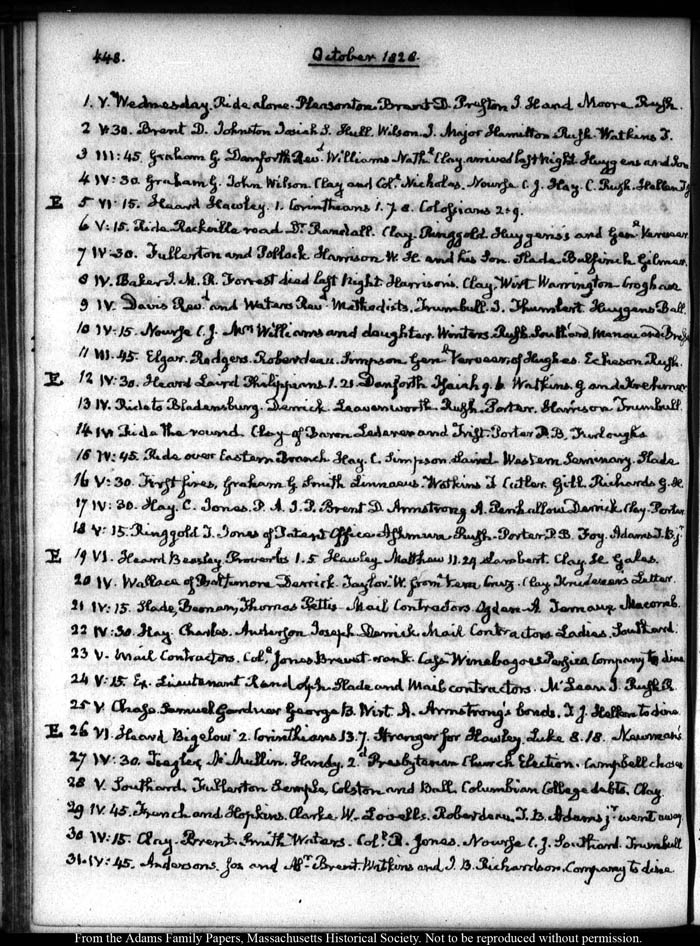 448. October 1828.
1. V. Wednesday. Ride alone. Pleasonton. Brent D. Preston J. H and Moore Rush.
2 V:30. Brent D. Johnston Josiah S. Hull. Wilson. J. Major Hamilton Rush. Watkins T.
3 III:45. Graham G. Danforth Revd. Williams Nathl Clay arrived last Night. Huygens and Son
4 IV:30. Graham G. John Wilson. Clay and Col. Nicholas. Nourse C. J. Hay. C. Rush. Hellen
E 5 VI:15. Heard Hawley. 1. Corinthians 1. 7. 8. Colossians 2:9.
6 V:15. Ride Rockville road. Dr Randall. Clay. Ringgold. Huygens's and Genl Verveer
7 IV:30. Fullerton and Pollock. Harrison W. H. and his Son. Slade. Bulfinch Gilmer
8 IV. Baker J. M. R. Forrest died last Night. Harrisons. Clay. Wirt Warrington. Croghan
9 IV. Davis Revd and Waters Revd Methodists. Trumbull. J. Huygens Ball.
10 IV:15. Nourse C. J. Mrs Williams and daughter. Winters. Rush. Southard. and
11 III:45. Elgar. Rodgers. Roberdeau. Simpson. Genl Verveer, of Hughes. Rush.
E 12 IV:30. Heard Laird Philippians 1. 21. Danforth Isaiah 9. 6 Watkins. G and
13 IV. Ride to Bladensburg. Derrick. Leavenworth. Rush. Porter. Harrison Trumbull.
14 IV Ride the round. Clay of Baron Lederer and Trist. Porter P. B. Furloughs
15 IV:45. Ride over Eastern Branch. Hay. C. Simpson. Laird. Western Seminary. Slade
16 V:30. First fires, Graham G. Smith Linnaeus. Watkins T. Cutler. Gill. Richards G. H.
17 IV:30. Hay. C. Jones. P. A. J. P. Brent D. Armstrong A. Penhallow Derrick Clay. Porter
18 V:15. Ringgold T. Jones of Patent Office. Ashmun Rush. Porter P. B. Foy. Adams T. B. jr
E 19 VI. Heard Beasley Proverbs 1. 5 Hawley. Matthew 11. 24. Lambert. Clay. H. Gales.
20 IV. Wallace of Baltimore Derrick. Taylor. W. from Vera Cruz. Clay. Letter.
21 IV:15. Slade, Beeman, Thomas Pettis. Mail Contractors. Ogden. A. Macomb.
22 IV:30. Hay. Charles. Anderson Joseph. Derrick. Mail Contractors. Ladies. Southard.
23 V. Mail Contractors. Col. Jones Brevet rank. Cass. Winebagoes Company to dine
24 V:15. Ex. Lieutenant Randolph. Slade and Mail contractors. McLean. J. Rush R.
25 V. Chase Samuel Gardner George B. Wirt. A. Armstrong's bonds. T. J. Hellen to dine.
E 26 VI. Heard Bigelow 2. Corinthians 13. 7. Stranger for Hawley. Luke 8. 18. Newman's
27 IV:30. McMullin. Handy. 2d Presbyterian Church Election. Campbell
28 V. Southard. Fullerton Semple, Colston and Ball. Columbian College debts. Clay
29 IV. 45. French and Hopkins. Clarke. W. Lovells. Roberdeau. T. B. Adams jr went away.
30 IV:15. Clay. Brent. Smith Waters. Col. R. Jones. Nourse C. J. Southard. Trumbull
31. IV:45. Andersons. Jos and Brent. Watkins and J. B. Richardson. Company to dine
From the Adams Family Papers, Massachusetts Historical Society. Not to be reproduced without permission.